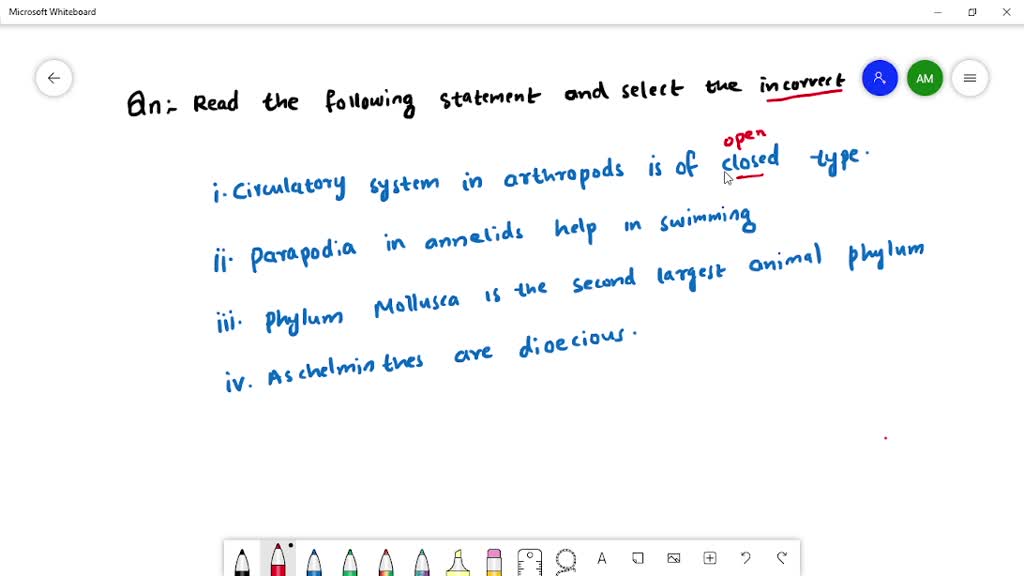 Microsoft Whiteboard
AM
Qn:- Read the following statement and select the incorrect
open
i. Circulatory system in arthropods is of closed type.
ii. Parapodia in annelids help in swimming
iii. Phylum Mollusca is the second largest animal phylum
iv. Aschelminthes are dioecious.
A